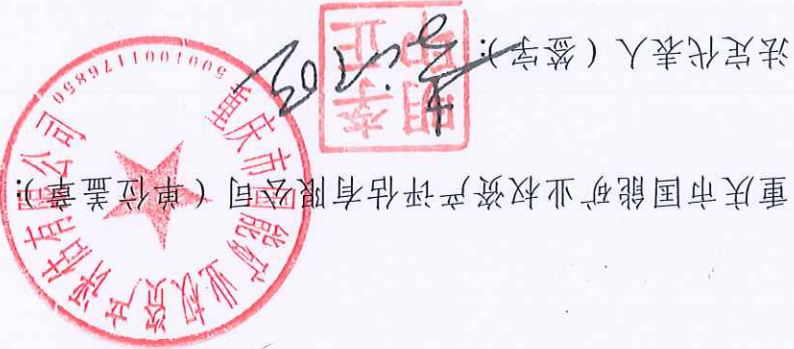 重庆市国能矿业权资产评估有限公司（单位盖章）：
法定代表人（签字）：
重庆市国能矿业权资产评估有限公司
5001001176850
李正明印